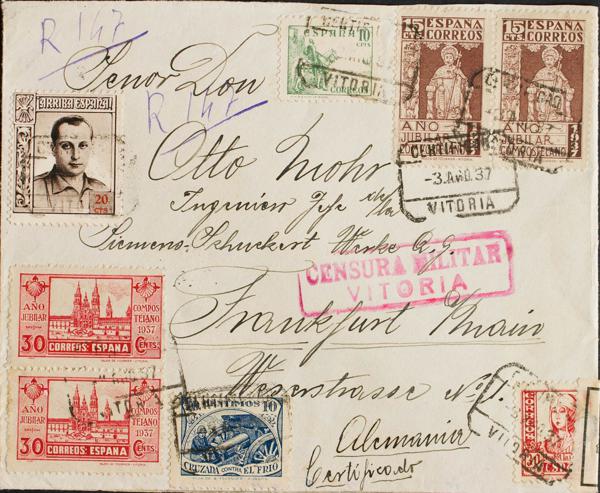 R 147
R 147
ESPAÑA 10
CTS
CORREOS
CERTIFICADO
VITORIA
15 ESPAÑA
CTS CORREOS
AÑO
JUBILAR
COMPOSTELANO
1937
15 ESPAÑA
CTS CORREOS
AÑO
JUBILAR
COMPOSTELANO
1937
CERTIFICADO
-3.AGO.37
VITORIA
ARRIBA ESPAÑA
20
CTS
Senor Don
Otto Mohr
Ingenieur Jefe de la
Siemens-Schuckert Werke A.G.
CENSURA MILITAR
VITORIA
Frankfurt Main
Weserstrasse No
Alemania
Certificado
AÑO
JUBILAR
COMPOS
TELANO
1937
30 CORREOS·ESPAÑA CENTS.
AÑO
JUBILAR
COMPOS
TELANO
1937
30 CORREOS·ESPAÑA CENTS.
VITORIA
10 CENTIMOS 10
CRUZADA CONTRA EL FRIO
CORREOS
30 CTS
VITORIA